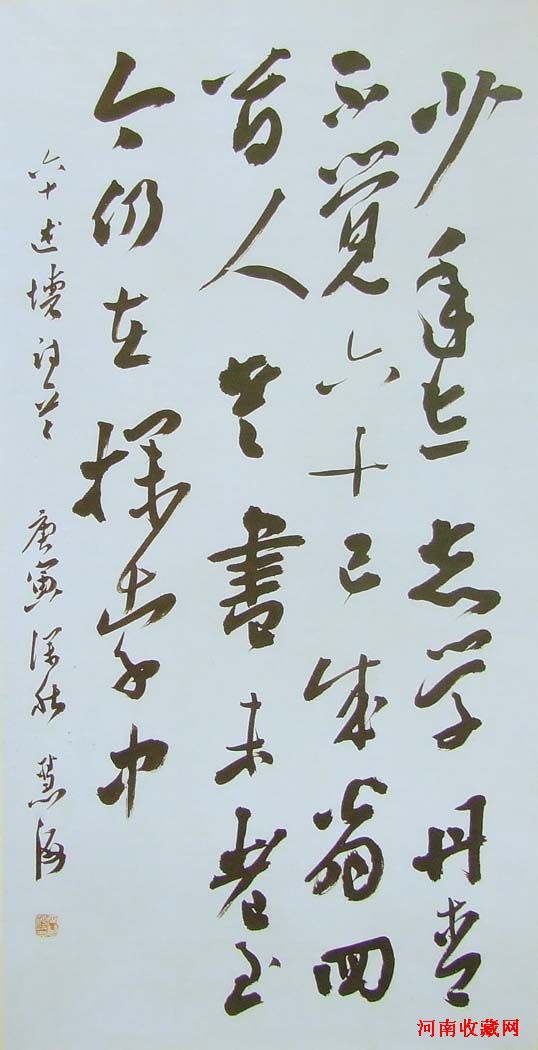 少年立志学丹青
不觉六十已成翁回
首人老書未老至
今仍在探索中
六十述懷诗首 庚寅深秋 慧海
河南收藏网